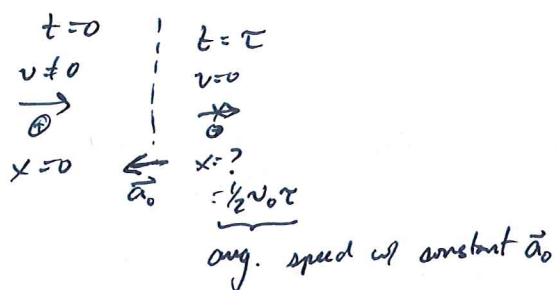 t=0
v≠0
⊕
x=0
t=τ
v=0
x=?
=½v₀τ
a⃗₀
avg. speed w/ constant a⃗₀